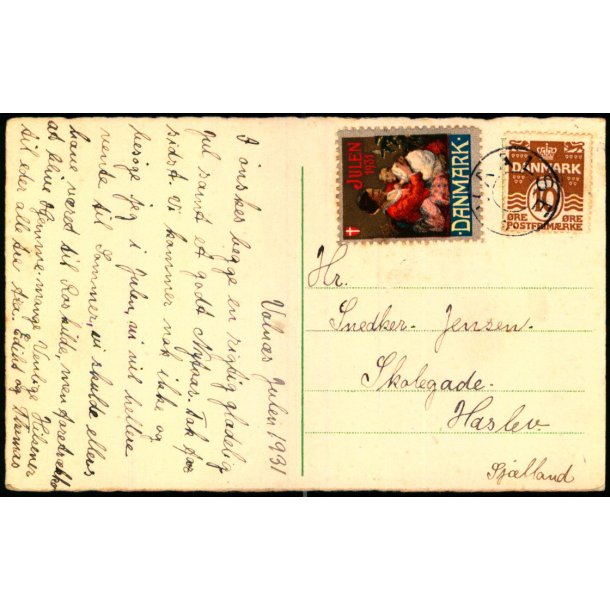 Valnæs Julen 1931
I ønskes begge en rigtig glædelig
Jul samt et godt Nytaar. Tak for
sidst. Vi kommer nok ikke og
besøge jer i Julen, vi vil hellere
vente til Sommer, vi skulde ellers
have været til Roskilde, men foretrækker
at blive hjemme. mange Venlige Hilsener
til eder alle tre fra Edith og Thomas
JULEN
1931
DANMARK
DANMARK
10
ØRE ØRE
POSTFRIMÆRKE
Hr.
Snedker. Jensen.
Skolegade.
Haslev.
Sjælland